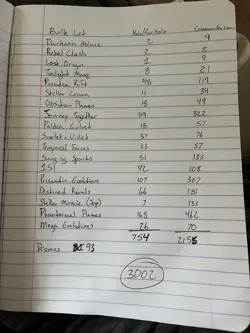 Bulk Lot Holo/Rev Holo Common/Uncommon
Darkness Ablaze 2 9
Rebel Clash 2 8
Lost Origin 1 9
Twilight Masq 8 21
Paradox Rift 48 119
Stellar Crown 11 34
Obsidian Flames 18 49
Journey Together 119 322
Paldea Evolved 15 57
Scarlet + Violet 37 76
Temporal Forces 23 57
Surging Sparks 51 133
151 42 108
Prismatic Evolutions 107 307
Destined Rivals 66 181
Stellar Miracle (Jap) 7 133
Phantasmal Flames 168 462
Mega Evolutions 26 70
754 2155
Promos 93
3002